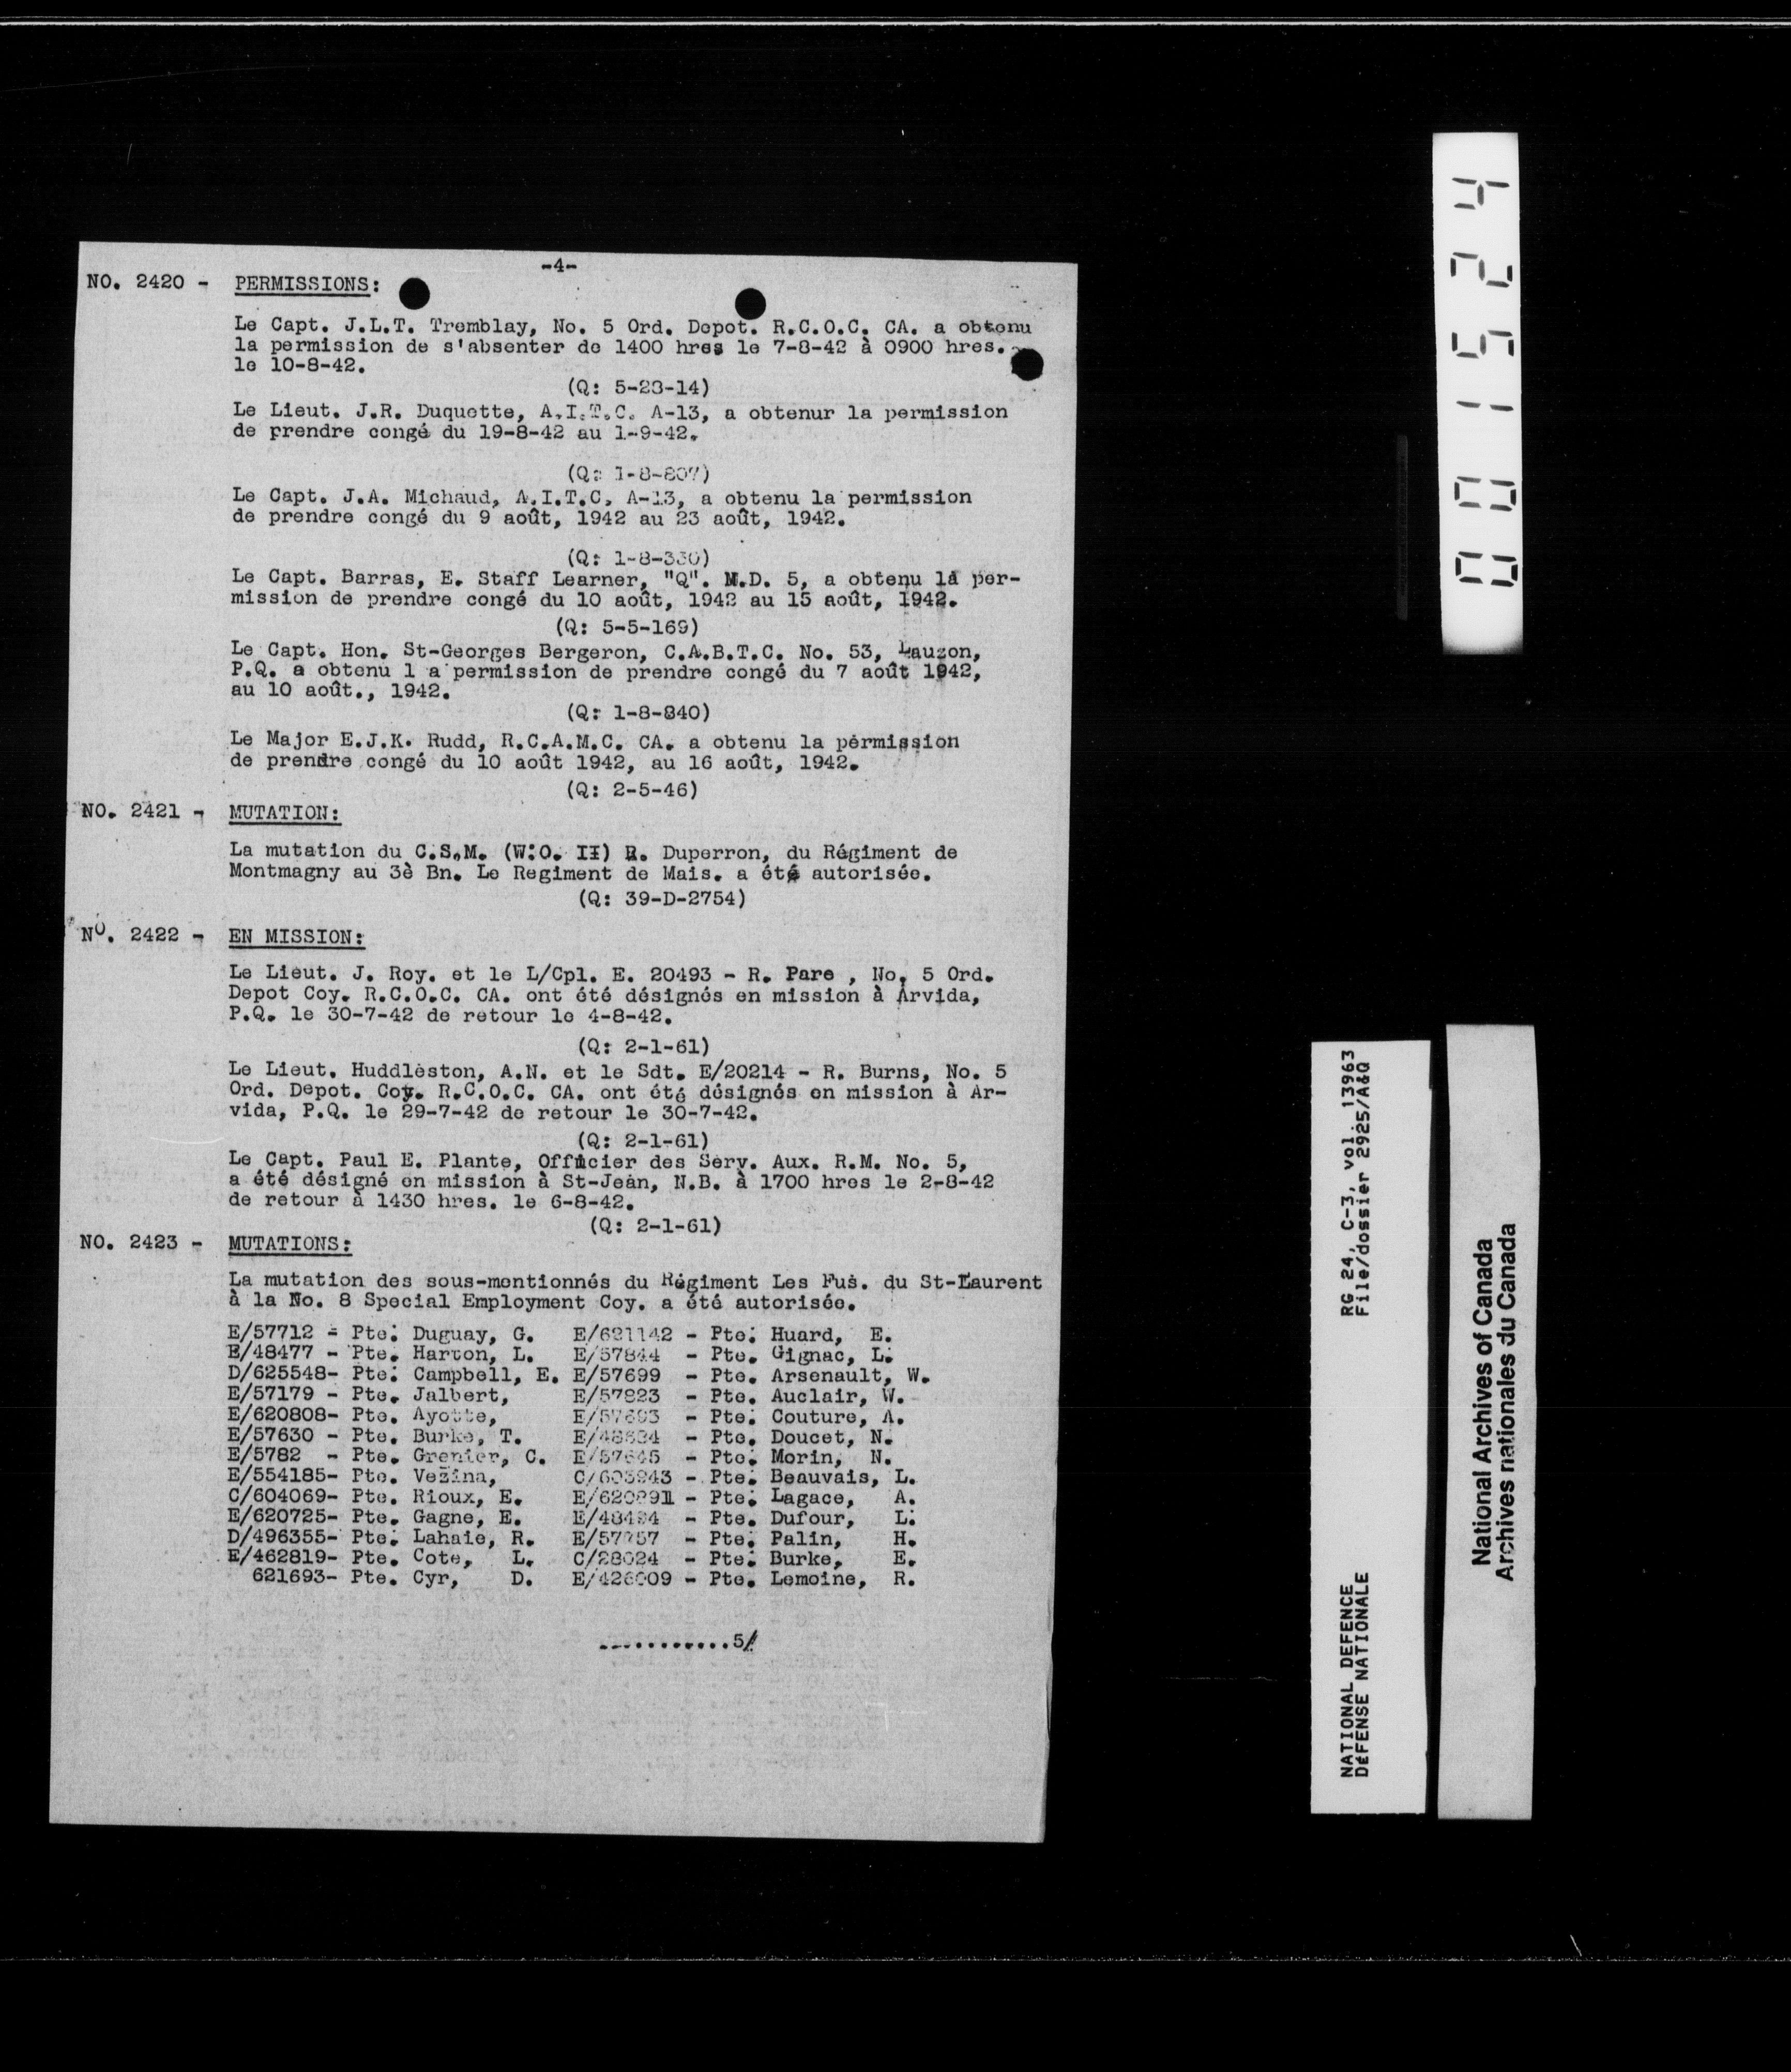 -4-
NO. 2420 - PERMISSIONS:
Le Capt. J.L.T. Tremblay, No. 5 Ord. Depot. R.C.O.C. CA. a obtenu
la permission de s'absenter de 1400 hres le 7-8-42 à 0900 hres.
le 10-8-42.
(Q: 5-23-14)
Le Lieut. J.R. Duquette, A.I.T.C. A-13, a obtenur la permission
de prendre congé du 19-8-42 au 1-9-42.
(Q: 1-8-807)
Le Capt. J.A. Michaud, A.I.T.C. A-13, a obtenu la permission
de prendre congé du 9 août, 1942 au 23 août, 1942.
(Q: 1-8-330)
Le Capt. Barras, E. Staff Learner, "Q". M.D. 5, a obtenu la per-
mission de prendre congé du 10 août, 1942 au 15 août, 1942.
(Q: 5-5-169)
Le Capt. Hon. St-Georges Bergeron, C.A.B.T.C. No. 53, Lauzon,
P.Q. a obtenu l a permission de prendre congé du 7 août 1942,
au 10 août., 1942.
(Q: 1-8-840)
Le Major E.J.K. Rudd, R.C.A.M.C. CA. a obtenu la permission
de prendre congé du 10 août 1942, au 16 août, 1942.
(Q: 2-5-46)
NO. 2421 - MUTATION:
La mutation du C.S.M. (W.O. II) R. Duperron, du Régiment de
Montmagny au 3è Bn. Le Regiment de Mais. a été autorisée.
(Q: 39-D-2754)
NO. 2422 - EN MISSION:
Le Lieut. J. Roy. et le L/Cpl. E. 20493 - R. Pare , No. 5 Ord.
Depot Coy. R.C.O.C. CA. ont été désignés en mission à Arvida,
P.Q. le 30-7-42 de retour le 4-8-42.
(Q: 2-1-61)
Le Lieut. Huddleston, A.N. et le Sdt. E/20214 - R. Burns, No. 5
Ord. Depot. Coy. R.C.O.C. CA. ont été désignés en mission à Ar-
vida, P.Q. le 29-7-42 de retour le 30-7-42.
(Q: 2-1-61)
Le Capt. Paul E. Plante, Officier des Serv. Aux. R.M. No. 5,
a été désigné en mission à St-Jean, N.B. à 1700 hres le 2-8-42
de retour à 1430 hres. le 6-8-42.
(Q: 2-1-61)
NO. 2423 - MUTATIONS:
La mutation des sous-mentionnés du Régiment Les Fus. du St-Laurent
à la No. 8 Special Employment Coy. a été autorisée.
E/57712 - Pte. Duguay, G. E/621142 - Pte. Huard, E.
E/48477 - Pte. Harton, L. E/57844 - Pte. Gignac, L.
D/625548- Pte. Campbell, E. E/57699 - Pte. Arsenault, W.
E/57179 - Pte. Jalbert, E/57823 - Pte. Auclair, W.
E/620808- Pte. Ayotte, E/57693 - Pte. Couture, A.
E/57630 - Pte. Burke, T. - Pte. Doucet, N.
E/5782 - Pte. Grenier, C. E/57645 - Pte. Morin, N.
E/554185- Pte. Vezina, C/603943 - Pte. Beauvais, L.
C/604069- Pte. Rioux, E. E/620891 - Pte. Lagace, A.
E/620725- Pte. Gagne, E. E/48494 - Pte. Dufour, L.
D/496355- Pte. Lahaie, R. - Pte. Palin, H.
E/462819- Pte. Cote, L. C/28024 - Pte. Burke, E.
621693- Pte. Cyr, D. E/426009 - Pte. Lemoine, R.
............5/
001524
NATIONAL DEFENCE RG 24, C-3, vol. 13963
DÉFENSE NATIONALE File/dossier 2925/A&Q
National Archives of Canada
Archives nationales du Canada